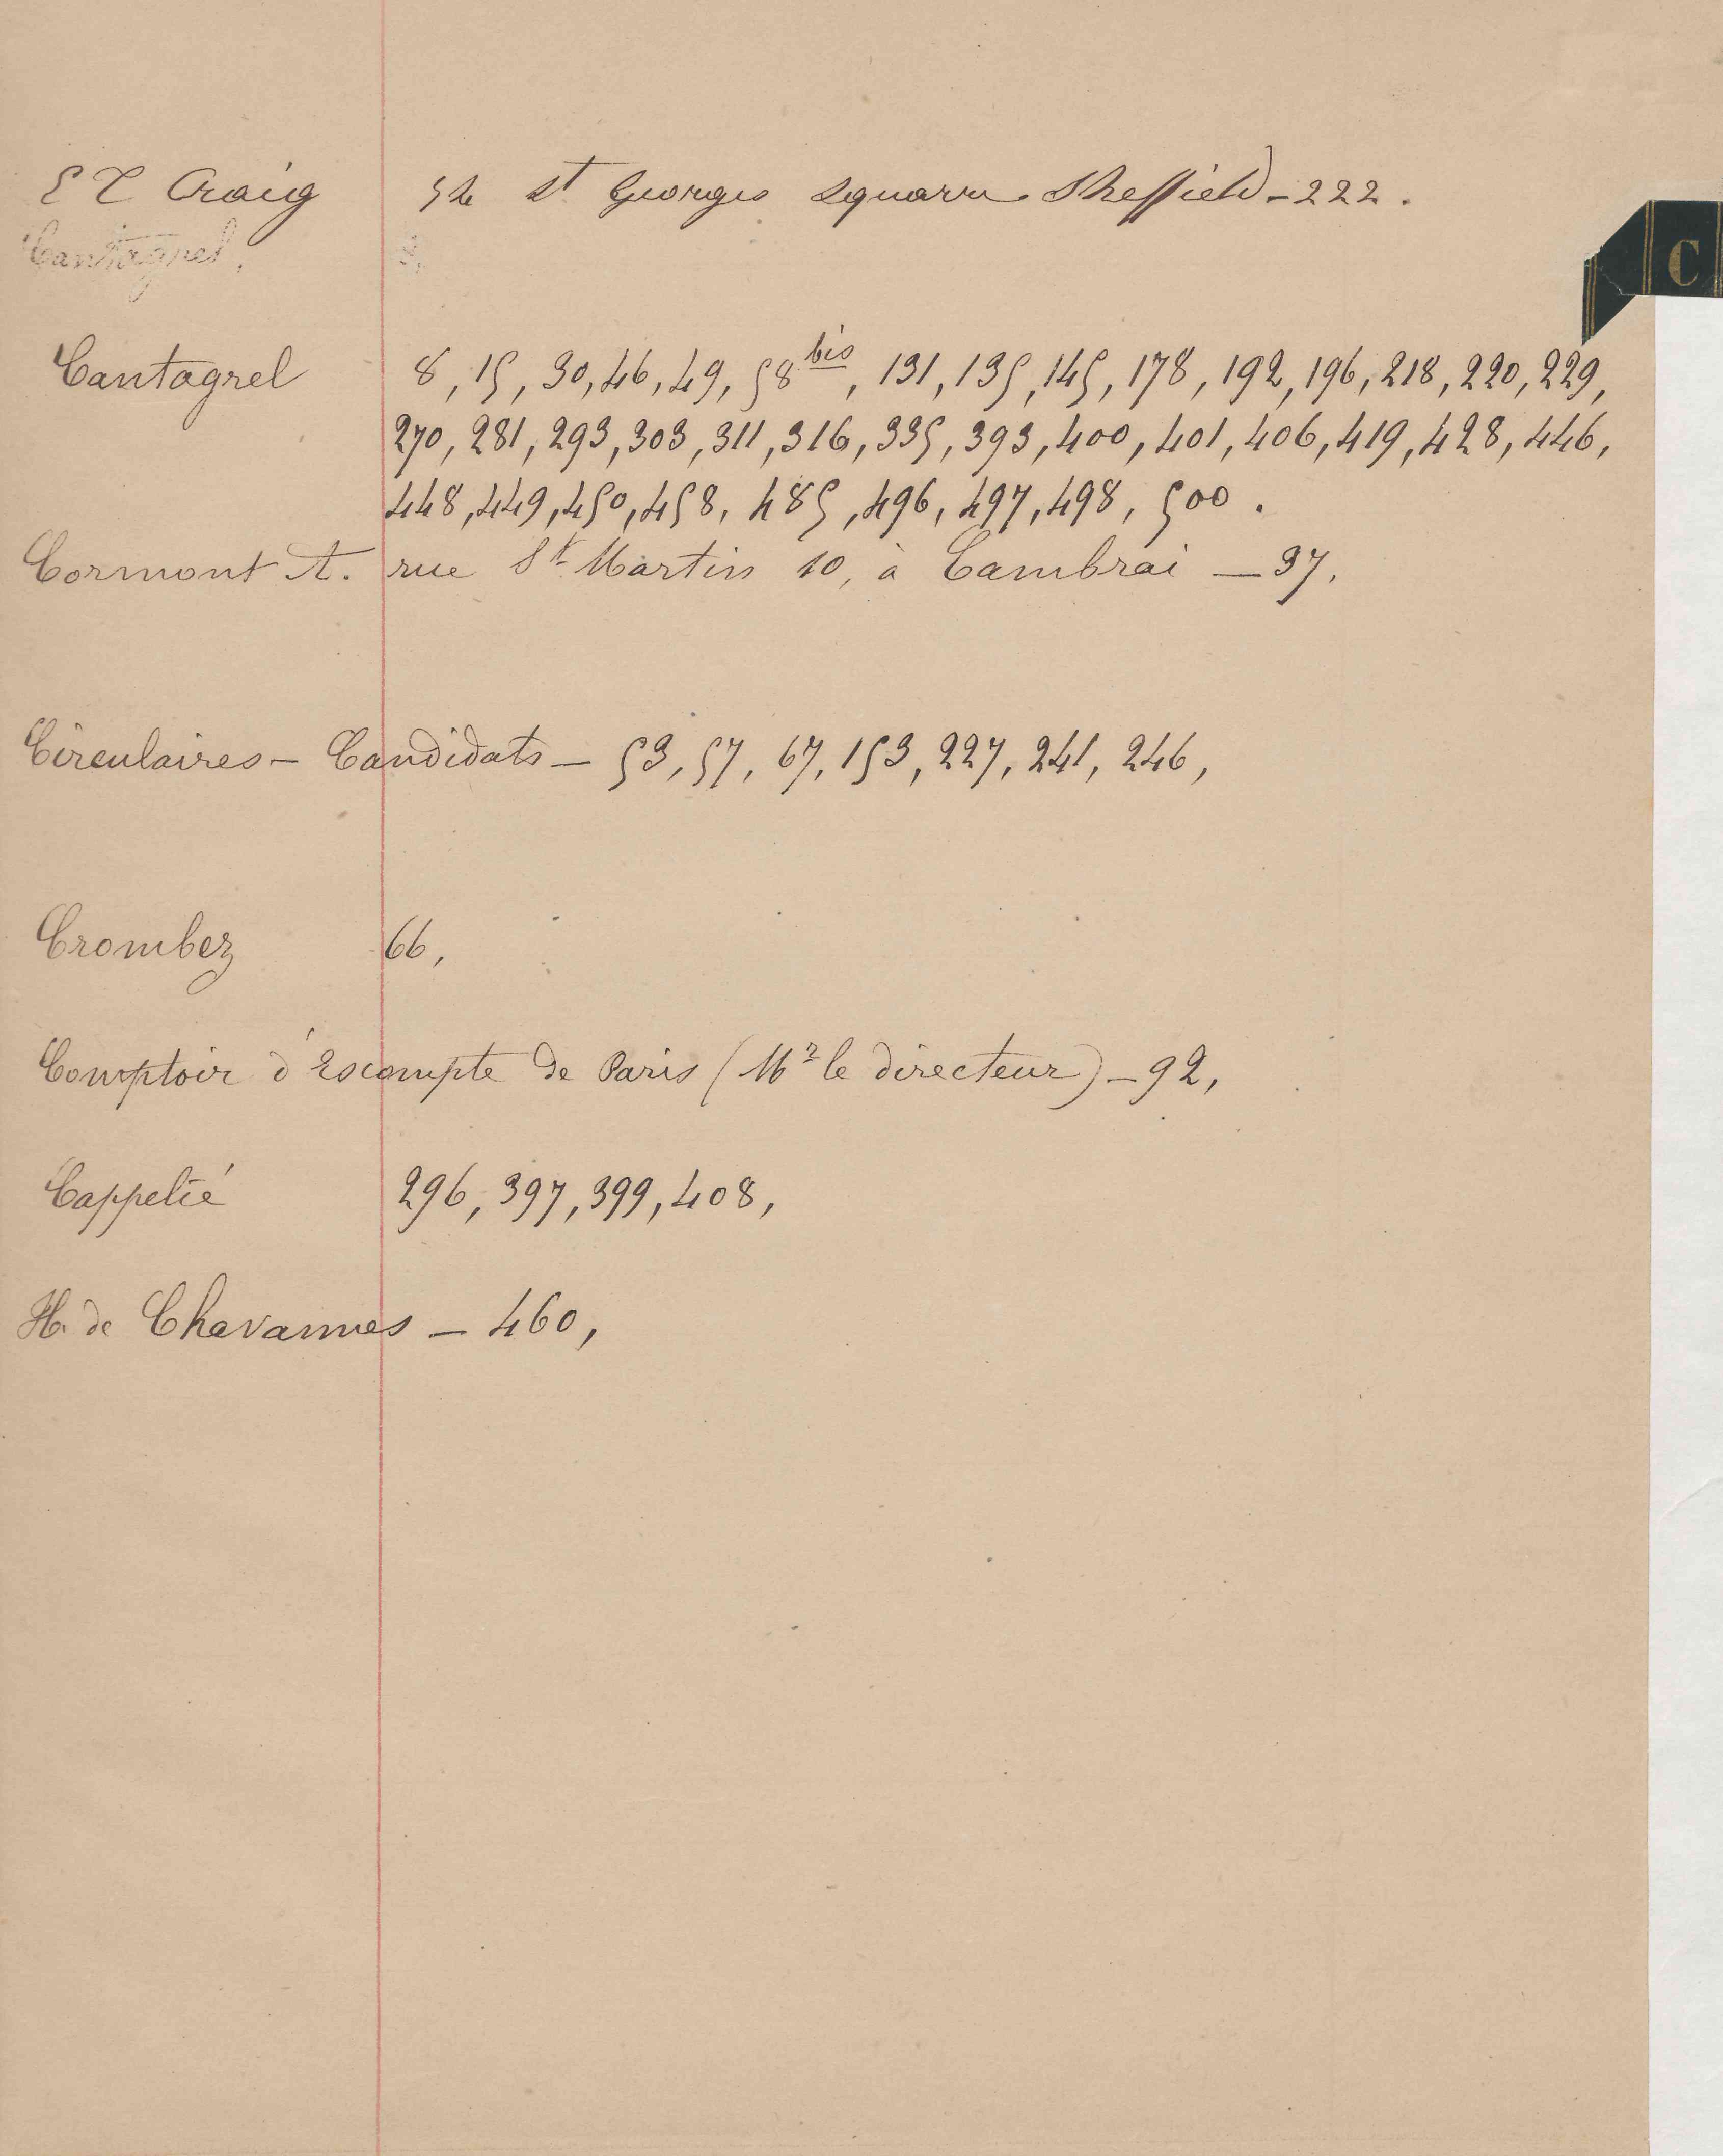 E T Craig 54 St Georges Squarre Sheffield - 222.
Cantagrel.
C
Cantagrel 8, 15, 30, 46, 49, 58 bis, 131, 135, 145, 178, 192, 196, 218, 220, 229,
270, 281, 293, 303, 311, 316, 335, 393, 400, 401, 406, 419, 428, 446,
448, 449, 450, 458, 485, 496, 497, 498, 500.
Cormont A. rue St Martin 10, à Cambrai — 37.
Circulaires - Candidats - 53, 57, 67, 153, 227, 241, 246,
Crombez 66,
Comptoir d'Escompte de Paris (Mr le directeur) - 92,
Cappelié 296, 397, 399, 408,
H. de Chavannes - 460,